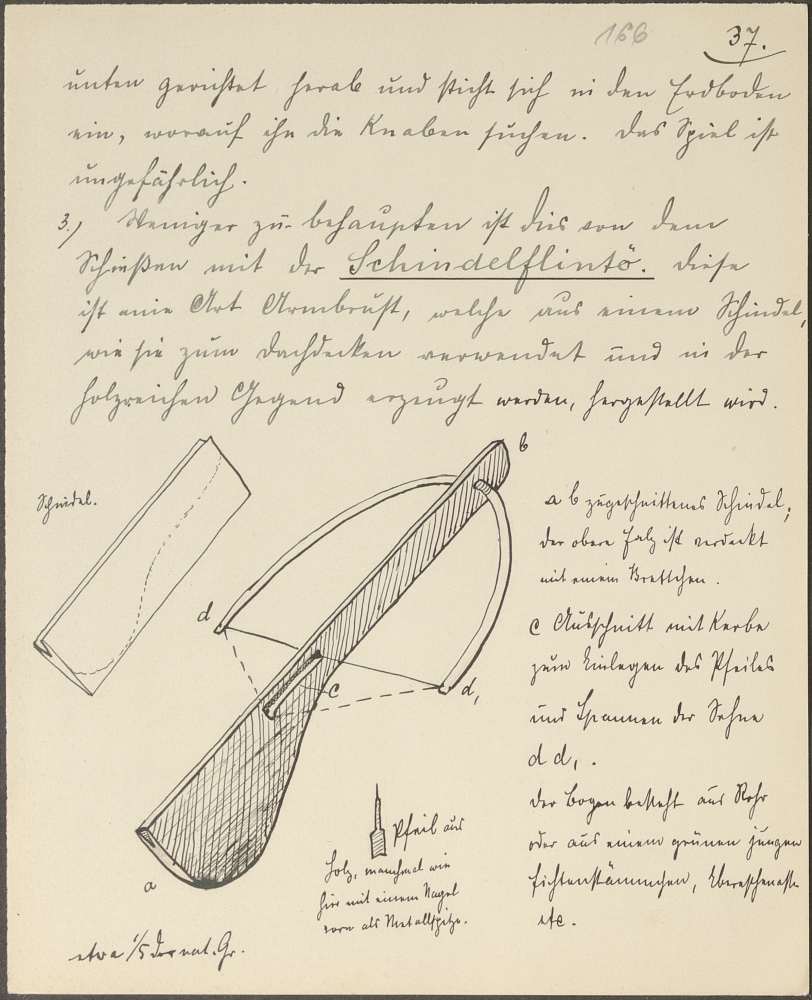 166
37.
unten gerichtet herab und sticht sich in den Erdboden
ein, worauf ihn die Knaben suchen. Das Spiel ist
ungefährlich.
3.) Weniger zu behaupten ist dies von dem
Schießen mit der Schindelflintö. Diese
ist eine Art Armbrust, welche aus einem Schindel,
wie sie zum Dachdecken verwendet und in der
holzreichen Gegend erzeugt werden, hergestellt wird.
Schindel.
b
d
c
d,
a
a b zugeschnittenes Schindel;
der obere Falz ist verdeckt
mit einem Brettchen.
c Ausschnitt mit Kerbe
zum Einlegen des Pfeiles
und Spannen der Sehne
d d, .
Der Bogen besteht aus Rohr
oder aus einem grünen jungen
Fichtenstämmchen, Ebereschenast
etc.
Pfeil aus
Holz, manchmal wie
hier mit einem Nagel
vorn als Metallspitze.
etwa 1/5 der nat. Gr.